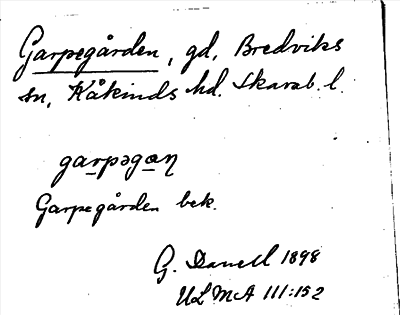 Garpegården, gd, Bredviks
sn, Kåkinds hd. Skarab. l.
garpəgɑn
Garpegården bek.
G. Danell 1898
ULMA 111:152